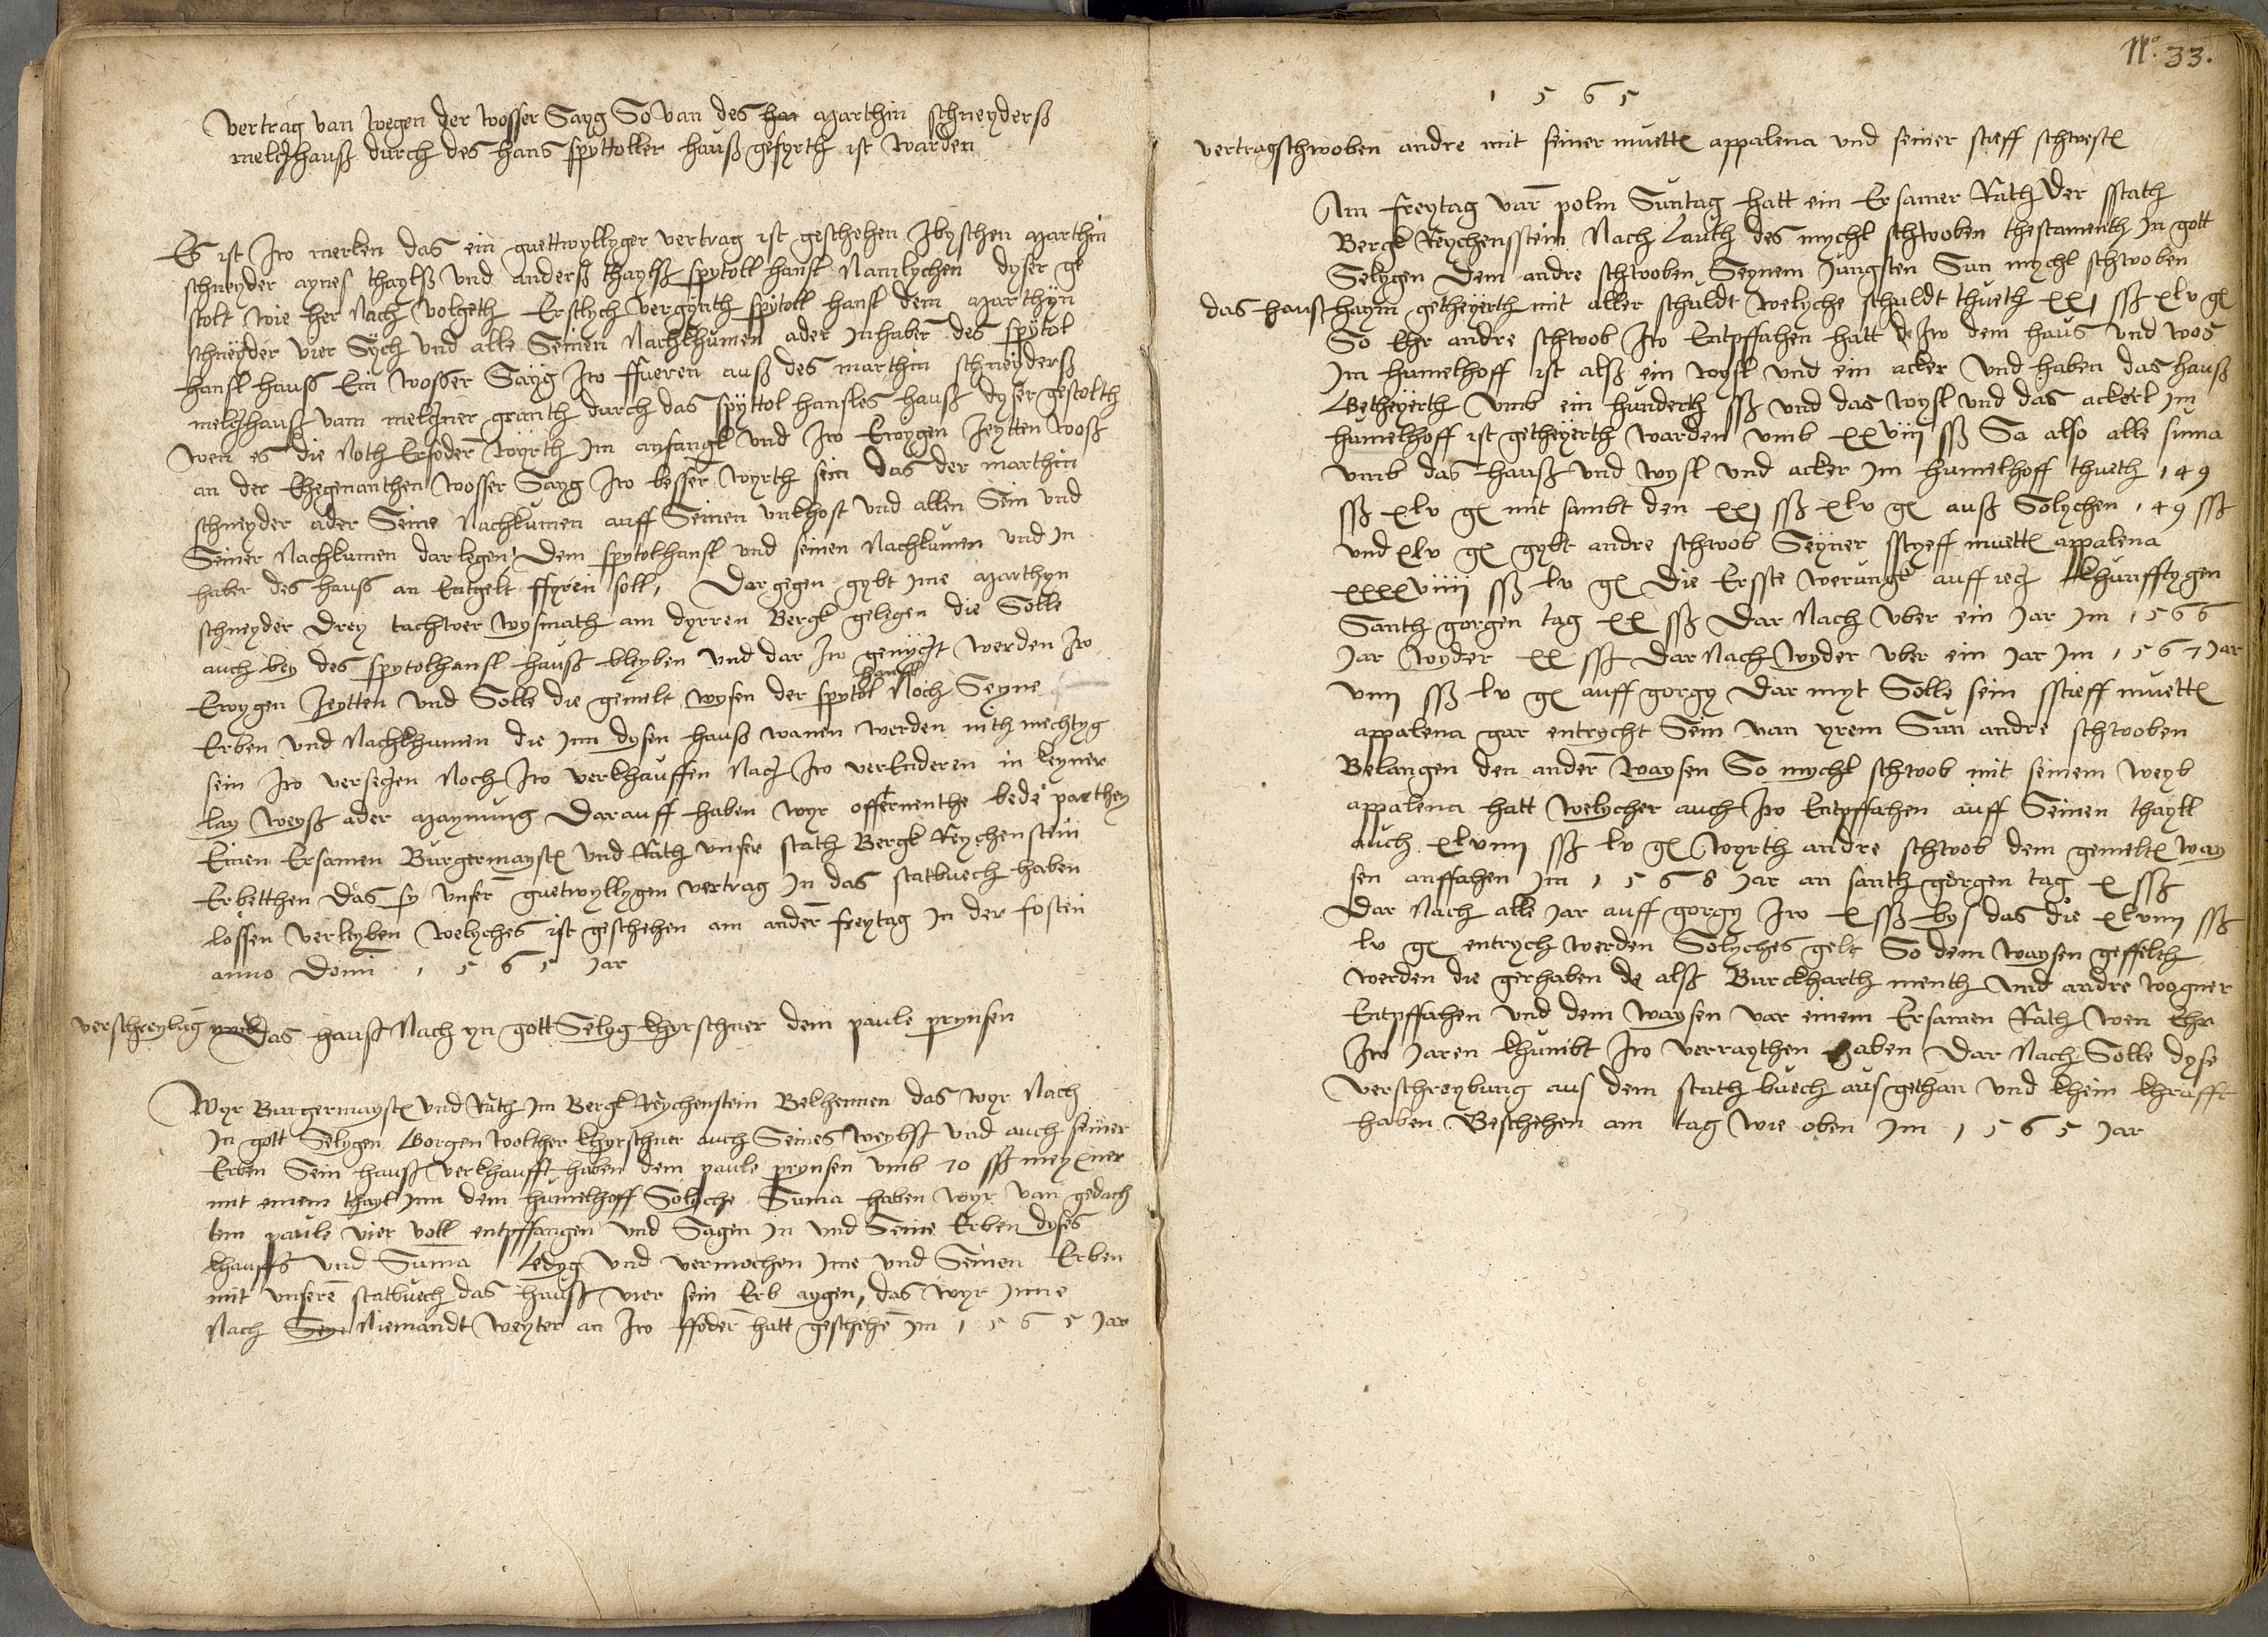 Vertrag van wegen der wosser Sayg So van des han Marthin schneyderß
melczhauß durch des hans spyttoller hauß gefyrth ist warden
Es ist zw merken das ein guettwyllyger vertrag ist geschehen zbyschen Marthin
schneyder aynes thaylß vnd anderß thaylß spytoll hansl Namlychen dyser ge
stolt wie her Nach volgeth Erstlych vergynth spytoll hansl dem Marthyn
schneyder vier Sych vnd alle Seinen Nachkhumen ader Inhaber des spytol
hansl hauß Ein wosser Sayg zw ffueren auß des marthin schneyderß
melczhauß vam melczner granth durch das spyttol hansles hauß dyser gestolth
Wen es die Noth Erfoder wyrth Im anfangk vnd zw Ewygen zeytten woß
an der Ehegenanthen wosser Sayg zw besser wyrth sein das der marthin
schneyder ader Seine Nachkumen auff Seinen vnkhost vnd allen Sein vnd
Seiner Nachkumen darlegen Dem spytolhansl vnd seinen Nachkumen vnd In
haber des hauß an Entgelt ffyren soll, Dar gegen gybt Ime Marthyn
schneyder Drey tachwer wysmath am dyrren Bergk gelegen die Solle
auch bey des spytolhansl hauß bleyben vnd dar zw genyczt werden zw
Ewygen zeytten vnd Solle die gemelt wysen der spytol hansl Noch Seyne
Erben vnd Nachkhumen die Inn dysen hauß wanen werden nith mechtyg
sein zw verseczen Noch zw verkhauffen Nach zw verEnderen in keyner
lay weyß ader Maynung Darauff haben wyr offternenthe bede parthey
Einen Ersamen Burgermayster vnd Rath vnser stath Bergk Reychenstein
Erbetthen das sy vnser guetwyllygen vertrag In das statbuech haben
lossen verleyben welyches ist geschehen am ander freytag In der fosten
anno Domi 1565 Jar
verschreybug vmb das hauß Nach yn gott Selyg khyrschner dem paule prynsen
Wyr Burgermayster vnd Rath Im Bergk Reychenstein Bekhennen das wyr Nach
In gott Selygen Gorgen wolther khyrschner auch Seines weybß vnd auch seiner
Erben Sein hauß verkhaufft haben dem paule prynsen vmb 70 ß meyxner
mit einem thayl Inn dem humelhoff Solyche Suma haben wyr van gedach
ten paule vier voll entpffangen vnd Sagen In vnd Seine Erben dyses
khauffs vnd Suma Ledyg vnd vermachen Ime vnd Seinen Erben
mit vnseren statbuech das hauß vier sein Erb aygen, das wyr Inne
Nach Sey Niemandt weyter an zw ffoder hatt geschehe Im 1565 Jar
No. 33.
1565
vertrag schwoben andre mit seiner muetter appalena vnd seiner stieff schwester
Am freytag var polm Suntag hatt ein Ersamer Rath der stath
Bergk Reychensstein Nach Lauth des mychl schwoben thestamenth In gott
Selygen Dem andre schwoben Seynem Jungsten Sun mychl schwoben
das hauß haym getheyerth mit aller schuldt welyche schuldt thueth xxj ß xlv gr
So Ehr andre schwob zw Entpffahen hatt de zw dem haus vnd wos
Im humelhoff ist alß ein wysl vnd ein acker vnd haben das hauß
Getheyerth vmb ein hunderth ß vnd das wysl vnd das ackerl Im
humelhoff ist getheyerth warden vmb xxviii ß Sa also alle suma
vmb das hauß vnd wysl vnd acker Im humelhoff thueth 149
ß xlv gr mit sambt den xxj ß xlv gr auß Solychen 149 ß
vnd xlv gr gybt andre schwob Seyner sstyeff muetter appalena
xxxxviiii ß lv gr Die Ersste werungk auff iecz khunfftygen
Santh gorgen tag xx ß Dar Nach vber ein Jar Im 1566
Jar wyder xx ß Dar Nach wyder vber ein Jar Im 1567 Jar
viiii ß lv gr auff gorgy Dar myt Solle sein sstieff muetter
appalena gar entrycht Sein van yrem Sun andre schwoben
Belangen den ander waysen So mychl schwob mit seinem weyb
appalena hatt welycher auch zw Entpffahen auff Seinen thayll
auch xlviiii ß lv gr wyrth andre schwob dem gemelter way
sen anffahen Im 1568 Jar an santh gorgen tag x ß
Dar Nach alle Jar auff gorgy zw x ß bys das die xlviiii ß
lv gr entrych werden Solyches gelt So dem waysen geffelth
werden die gerhaben de alß Burckharth menth vnd andre wogner
Entpffahen vnd dem waysen var einem Ersamen Rath wen Ehr
zw Jaren khumbt zw verraythen haben Dar Nach Solle dyse
verschreybung aus dem stath buech aus gethan vnd khein khrafft
haben Beschehen am tag wie oben Im 1565 Jar